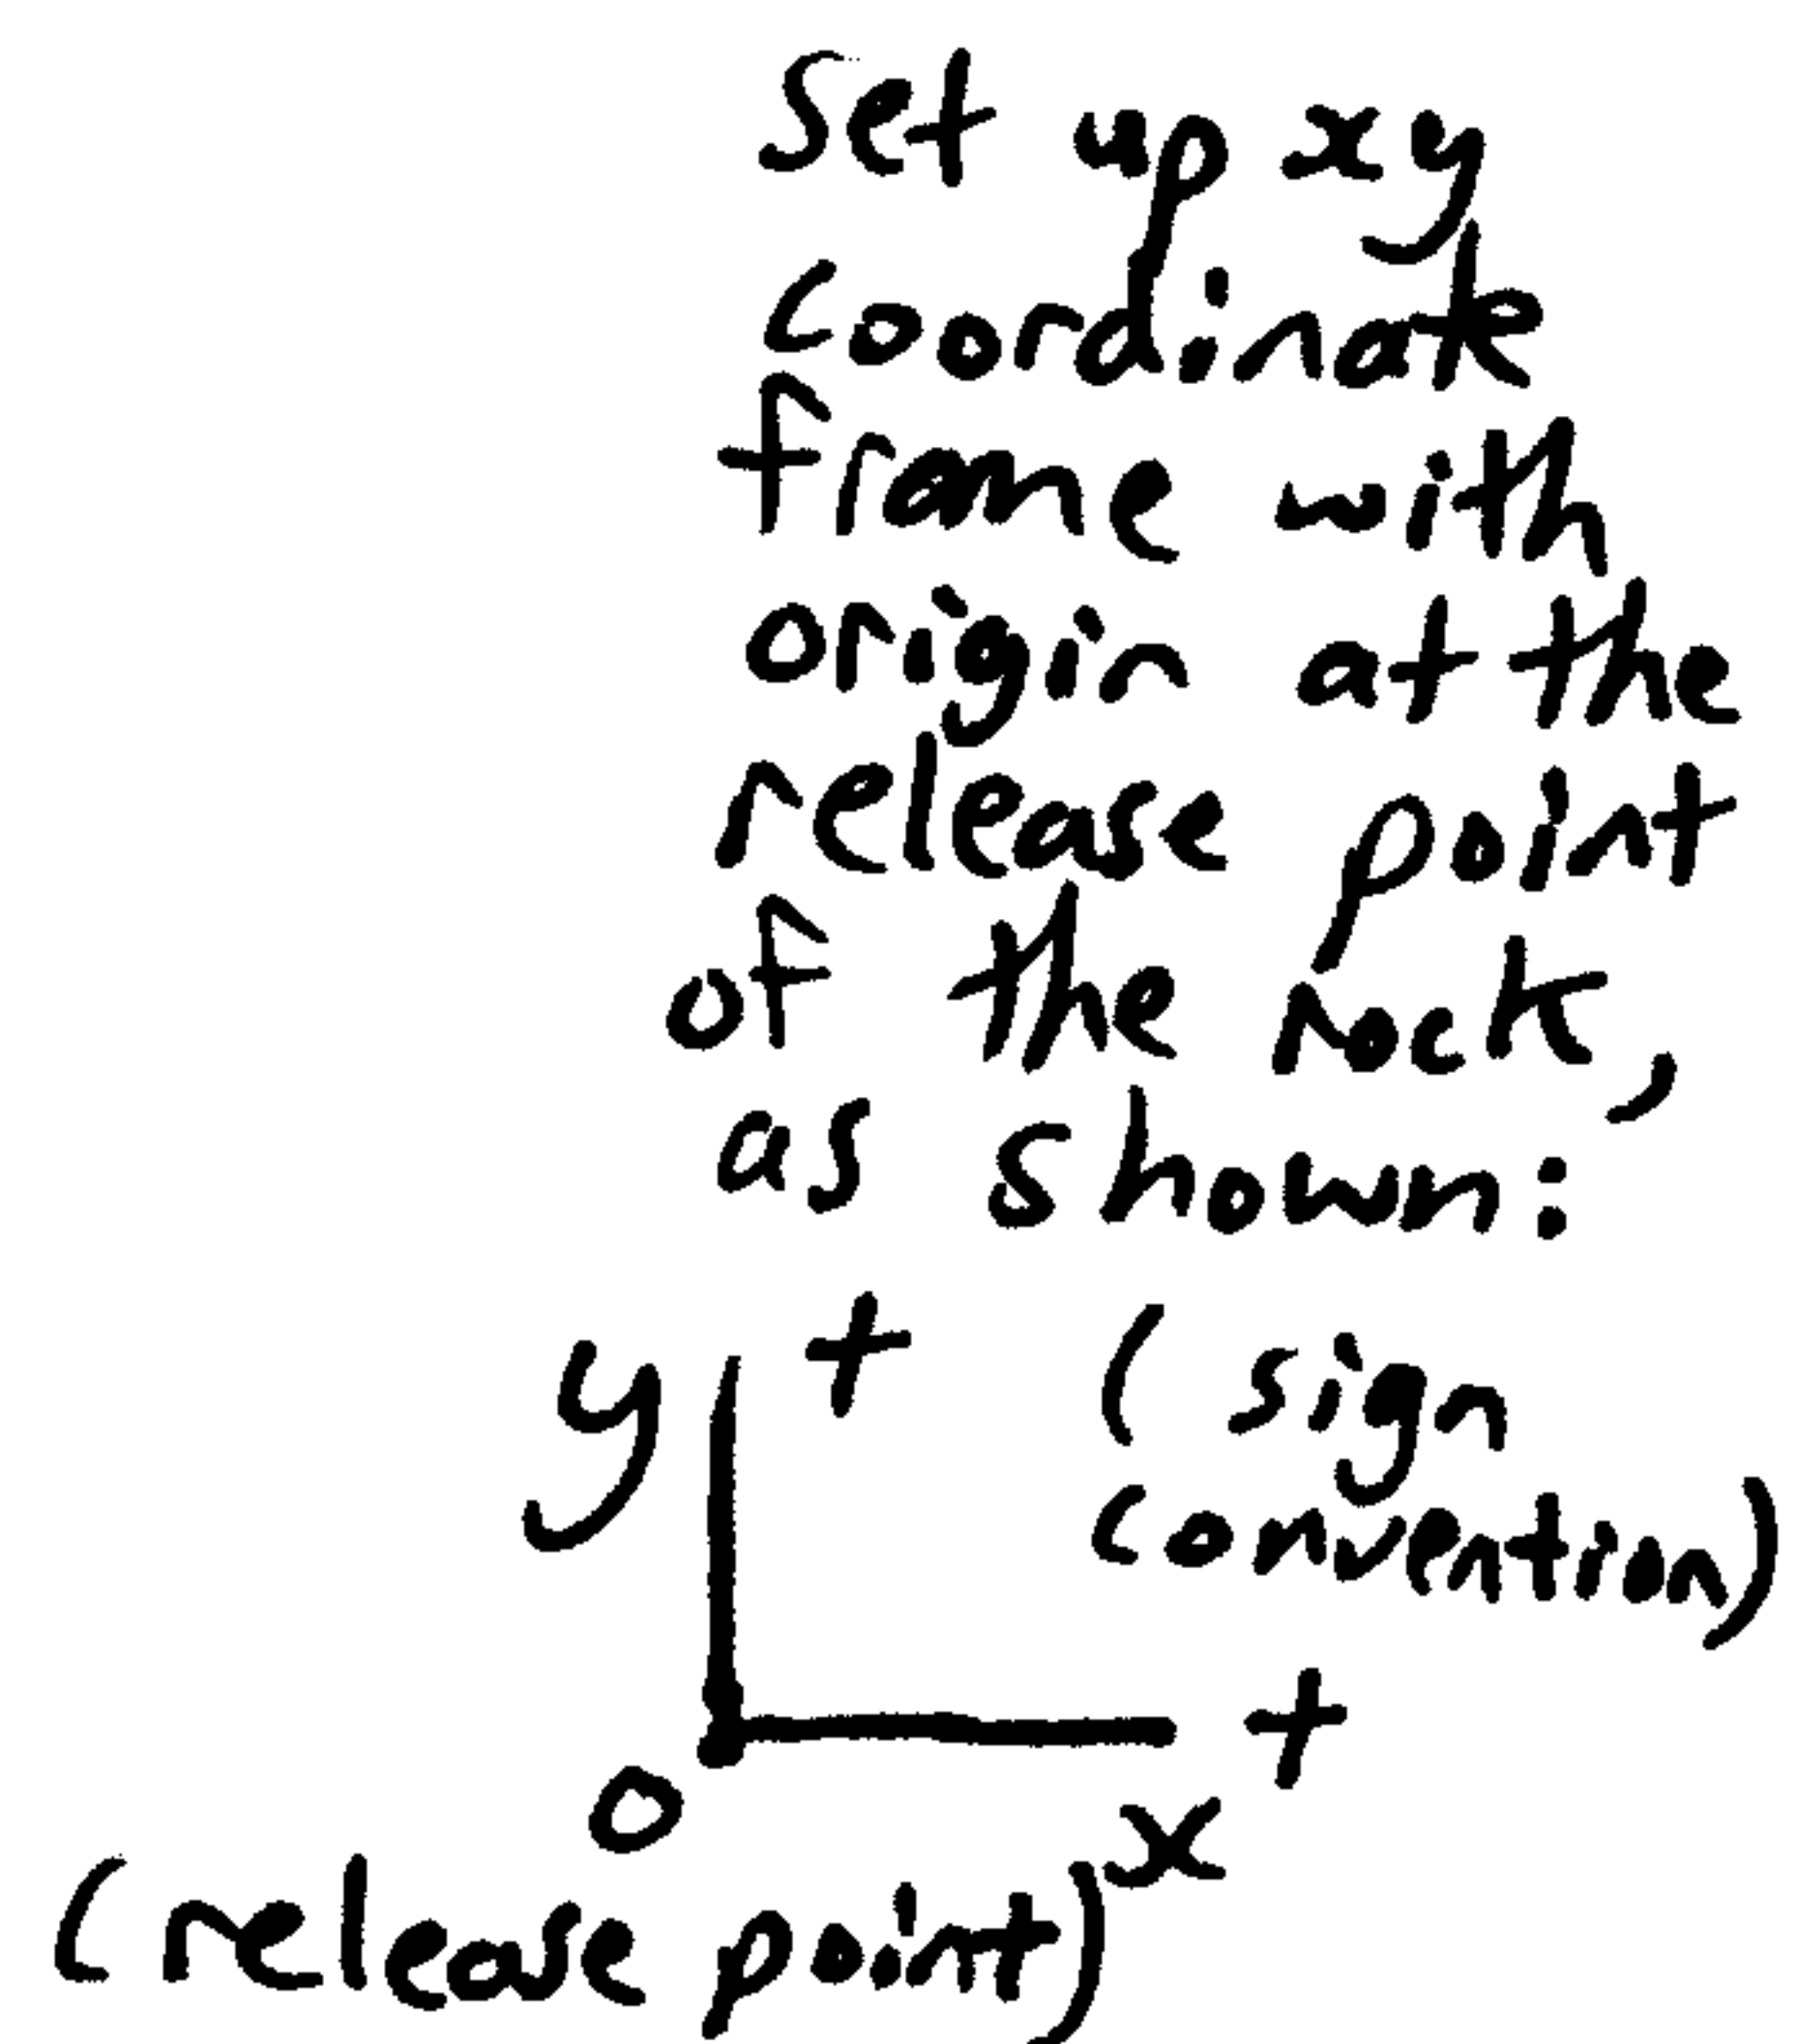 Set up xy
coordinate
frame with
origin at the
release point
of the rock,
as shown:
y + (sign
convention)
+
O
x
(release point)